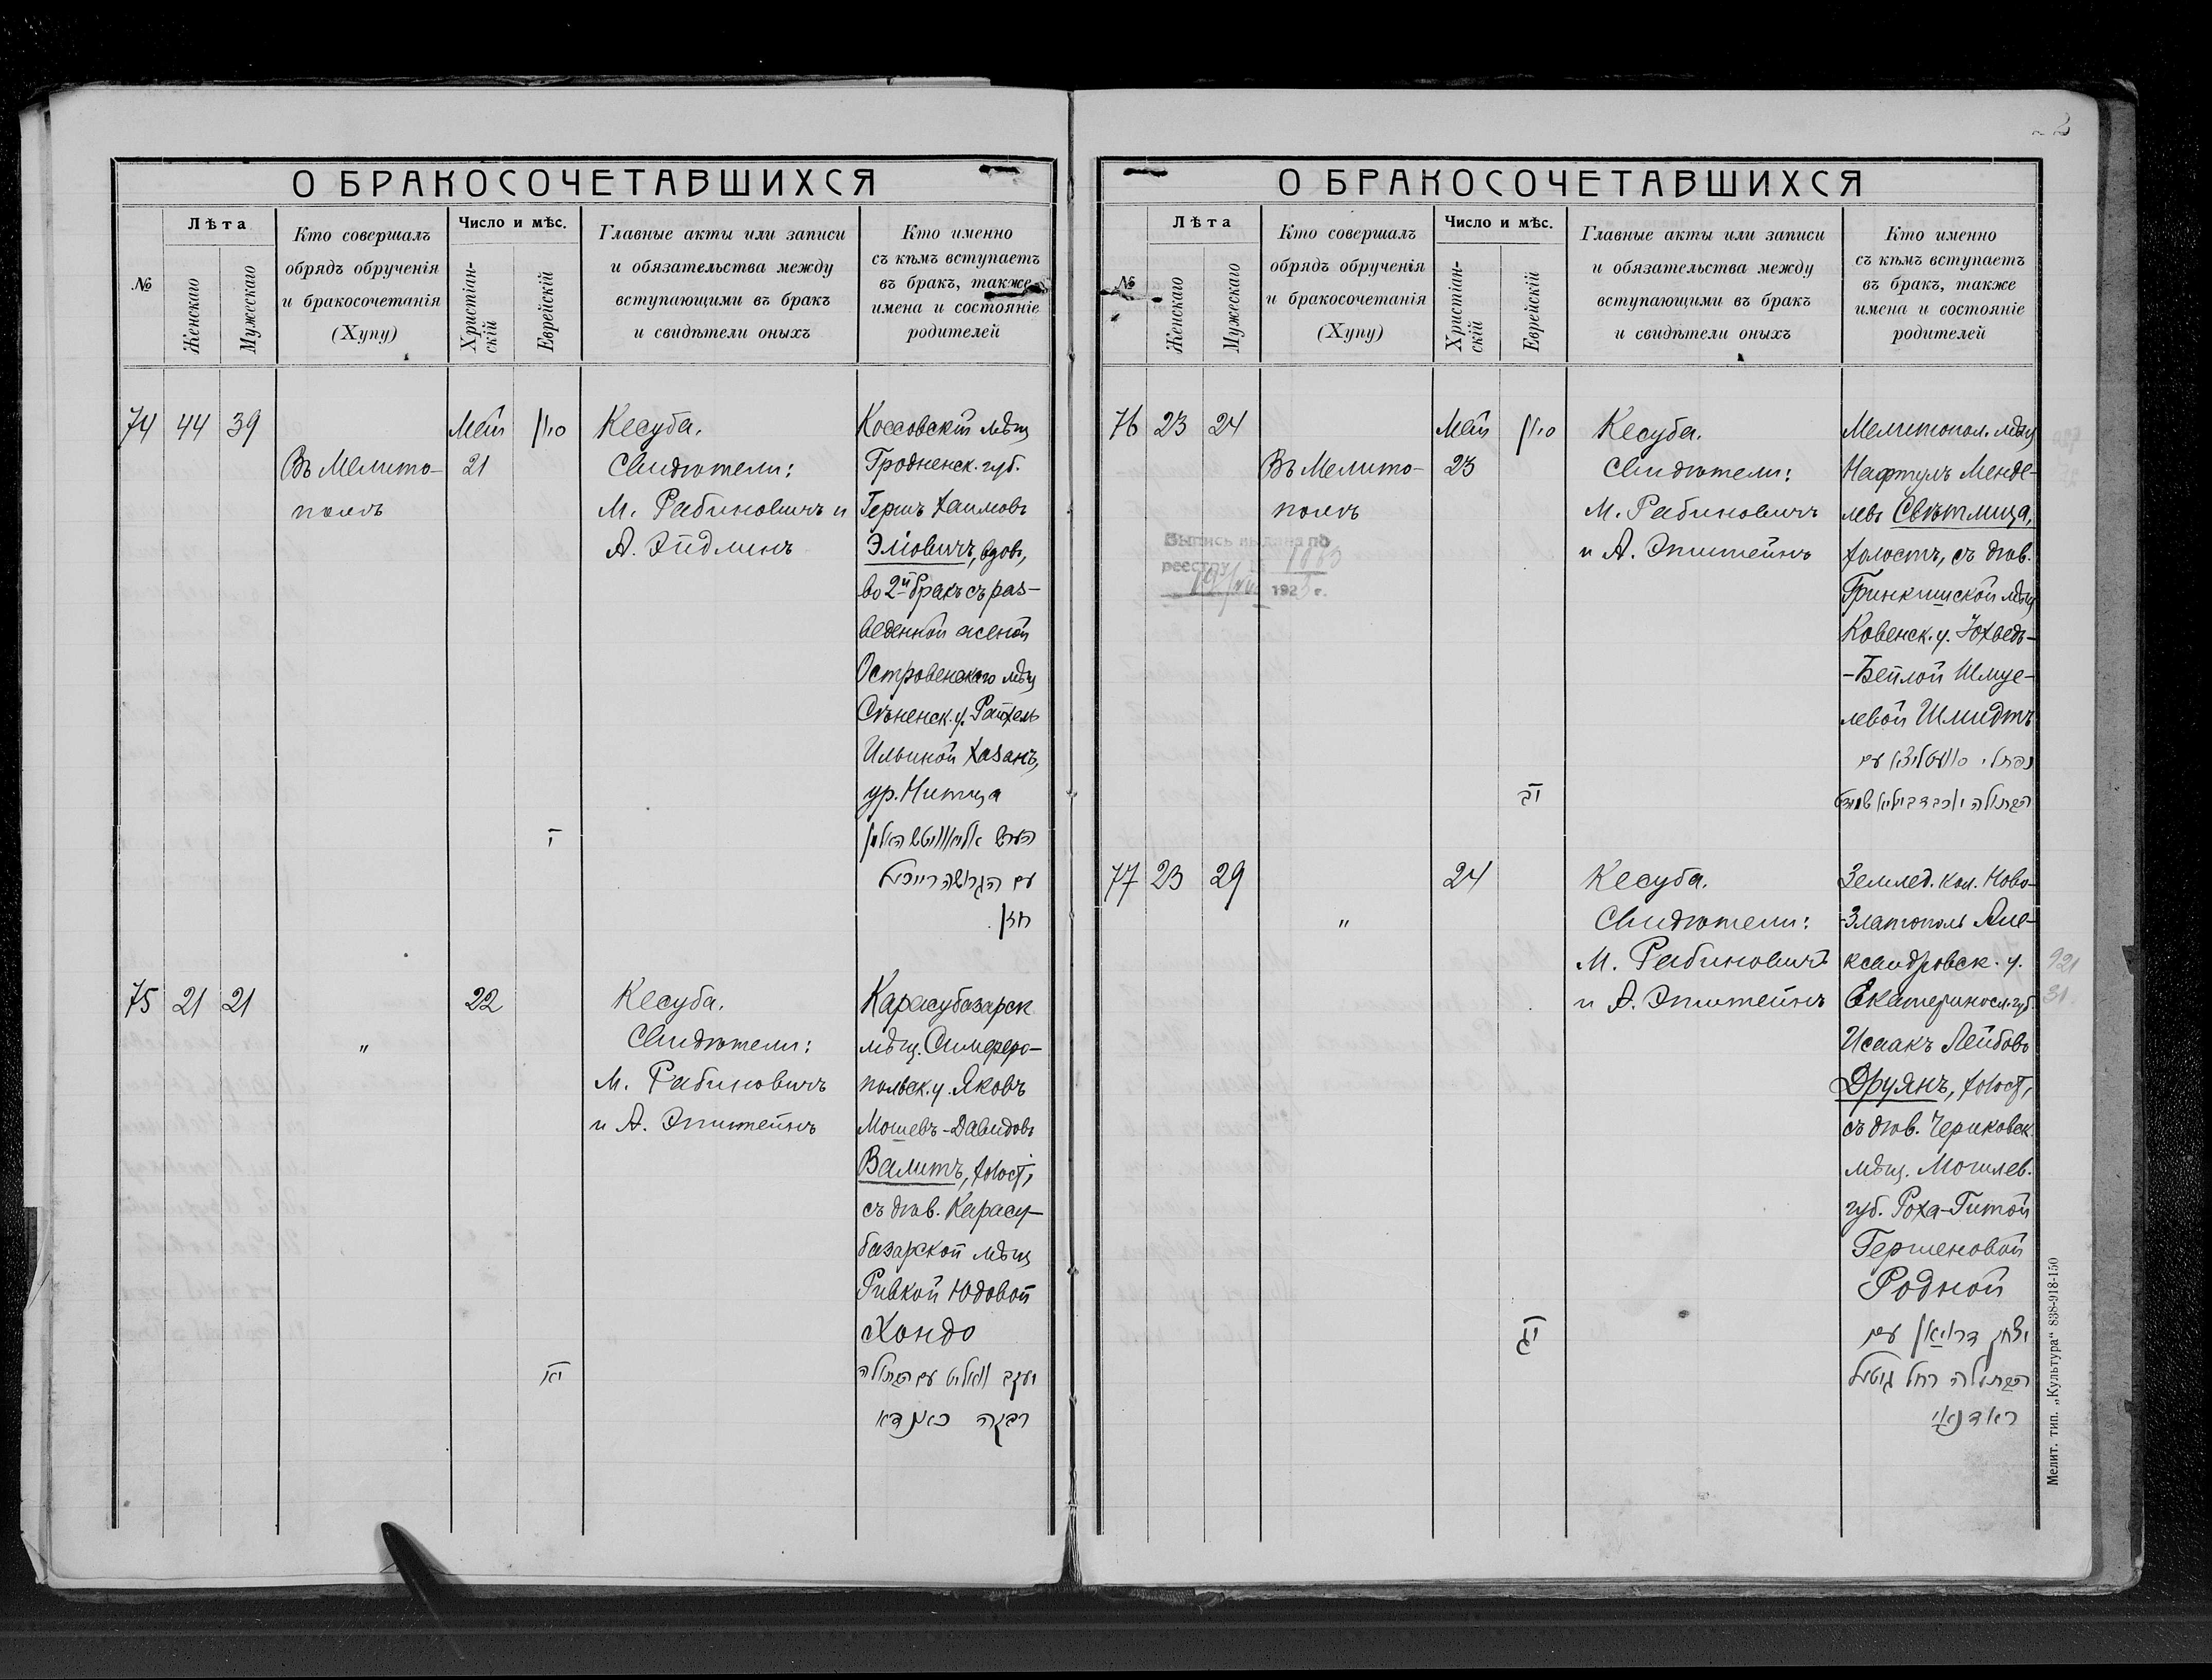 О БРАКОСОЧЕТАВШИХСЯ
№
Лѣта
Женскаго
Мужескаго
Кто совершалъ
обрядъ обрученія
и бракосочетанія
(Хупу)
Число и мѣс.
Христіан-
скій
Еврейскій
Главные акты или записи
и обязательства между
вступающими въ бракъ
и свидѣтели оныхъ
Кто именно
съ кѣмъ вступаетъ
въ бракъ, также
имена и состояніе
родителей
74 44 39
Въ Мелито-
полѣ
Май
21
סיון
י
Кесуба.
Свидѣтели:
М. Рабиновичъ и
А. Эйдлинъ
Коссовскій мѣщ
Гродненск. губ.
Гершъ Хаимовъ
Эліовичъ, вдов,
во 2й бракъ съ раз-
веденной женой
Островенскаго мѣщ
Сѣненск. у. Райхель
Ильиной Хазанъ,
ур. Нитца
עם הגרושה רייכיל
חזן.
75 21 21
"
22
יא
Кесуба.
Свидѣтели:
М. Рабиновичъ
и А. Эпштейнъ
Карасубазарск
мѣщ. Симферо-
польск. у. Яковъ
Мошевъ-Давидовъ
Валитъ, холост,
съ дѣв. Карасу-
базарской мѣщ
Ривкой Юдовой
Хондо
יעקב וואליט עם הבתולה
רבקה כאנדא
О БРАКОСОЧЕТАВШИХСЯ
№
Лѣта
Женскаго
Мужескаго
Кто совершалъ
обрядъ обрученія
и бракосочетанія
(Хупу)
Число и мѣс.
Христіан-
скій
Еврейскій
Главные акты или записи
и обязательства между
вступающими въ бракъ
и свидѣтели оныхъ
Кто именно
съ кѣмъ вступаетъ
въ бракъ, также
имена и состояніе
родителей
76 23 24
Въ Мелито-
полѣ
Выпись выдана по
реестру № 1663
192 г.
Май
23
סיון
יב
Кесуба.
Свидѣтели:
М. Рабиновичъ
и А. Эпштейнъ
Мелитопол. мѣщ
Нафтулъ Менде-
левъ Свѣтлица,
холостъ, съ дѣв.
Гринкишской мѣщ
Ковенск. у. Юхведъ-
-Бейлой Шмуе-
левой Шмидтъ
77 23 29
"
24
יג
Кесуба.
Свидѣтели:
М. Рабиновичъ
и А. Эпштейнъ
Землед. кол. Ново-
-Златополь Але-
ксандровск. у.
Екатериносл. губ.
Исаакъ Лейбовъ
Друянъ, холост,
съ дѣв. Чериковск.
мѣщ. Могилев.
губ. Роха-Гитой
Гершеновой
Родной
יצחק דרויאן עם
הבתולה רחל גיטיל
ראדנאי
921
31.
Мелит. тип. „Культура“ 838-918-150